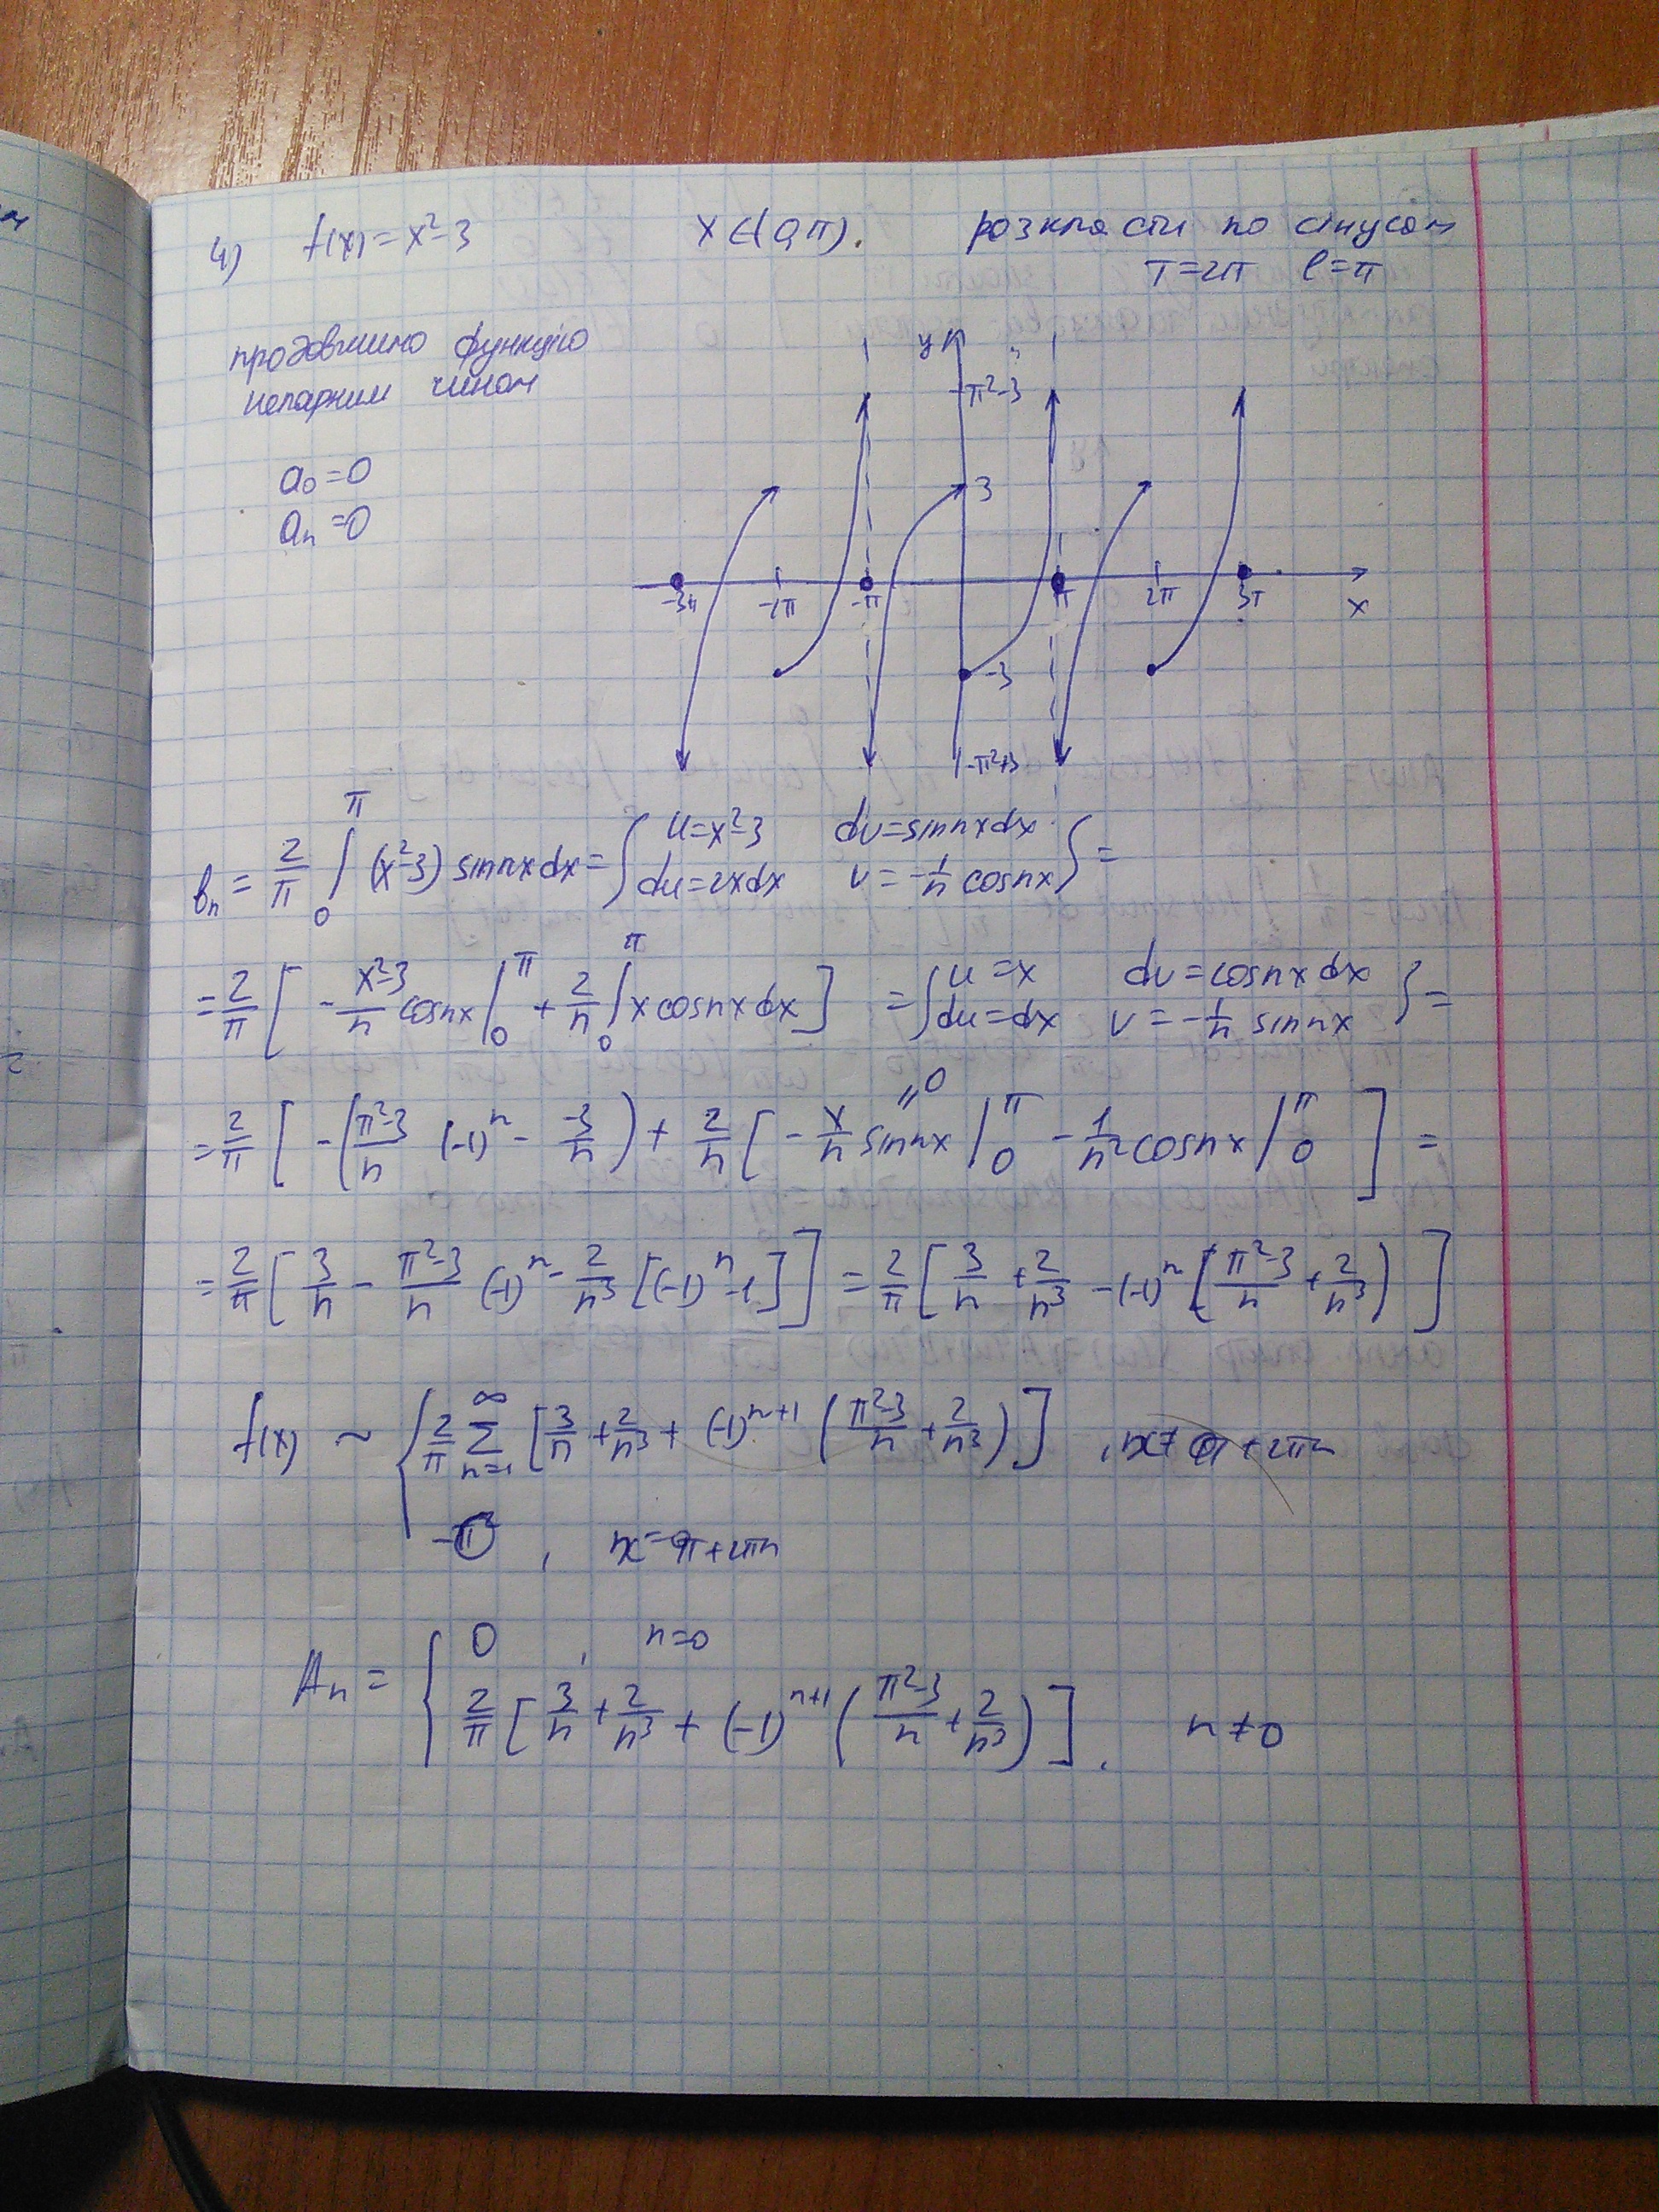 4) f(x) = x²-3 x ∈ (0,π). розкласти по синусам
T=2π l=π
продовжимо функцію
непарним чином
a₀=0
aₙ=0
y
π²-3
3
-3π -2π -π π 2π 3π
x
-3
-π²+3
bₙ = 2/π ∫₀^π (x²-3) sin nx dx = { u=x²-3 dv=sin nx dx
du=2xdx v=-1/n cos nx } =
= 2/π [ - (x²-3)/n cos nx |₀^π + 2/n ∫₀^π x cos nx dx ] = { u=x dv=cos nx dx
du=dx v=-1/n sin nx } =
= 2/π [ -( (π²-3)/n (-1)ⁿ - -3/n ) + 2/n [ - x/n sin nx |₀^π - 1/n² cos nx |₀^π ] =
"0
= 2/π [ 3/n - (π²-3)/n (-1)ⁿ - 2/n³ [(-1)ⁿ-1] ] = 2/π [ 3/n + 2/n³ - (-1)ⁿ ( (π²-3)/n + 2/n³ ) ]
f(x) ~ { 2/π ∑ₙ₌₁^∞ [ 3/n + 2/n³ + (-1)ⁿ⁺¹ ( (π²-3)/n + 2/n³ ) ] , x ≠ π + 2πn
, x = π + 2πn
Aₙ = { 0 , n=0
2/π [ 3/n + 2/n³ + (-1)ⁿ⁺¹ ( (π²-3)/n + 2/n³ ) ] , n ≠ 0